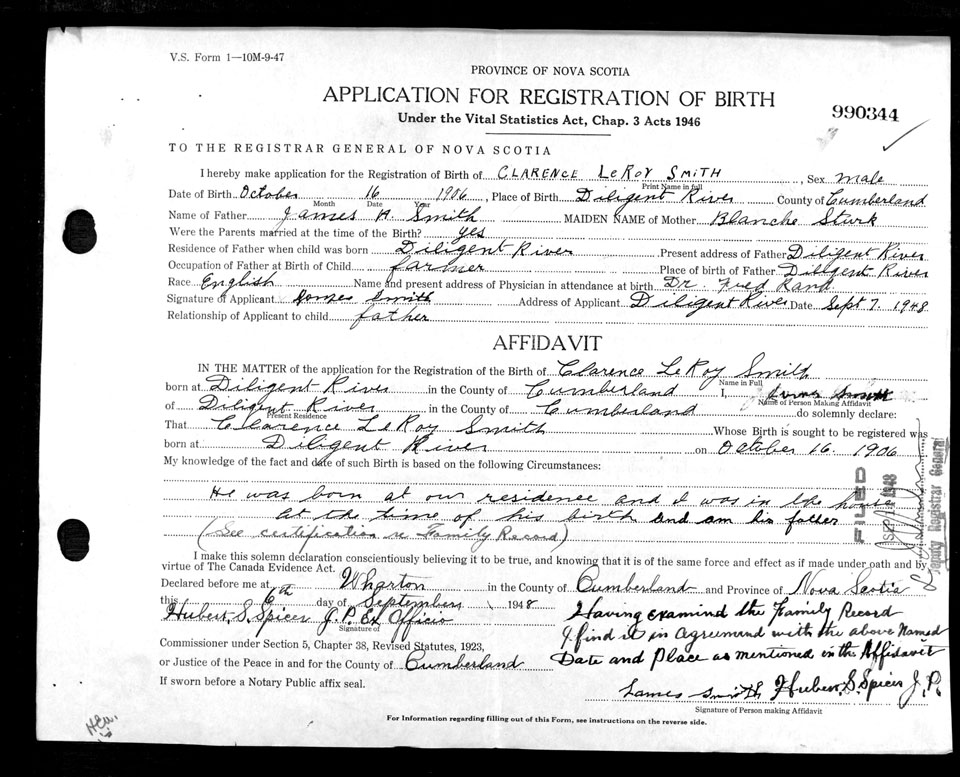 V.S. Form 1—10M-9-47
PROVINCE OF NOVA SCOTIA
APPLICATION FOR REGISTRATION OF BIRTH
990344
Under the Vital Statistics Act, Chap. 3 Acts 1946
TO THE REGISTRAR GENERAL OF NOVA SCOTIA
I hereby make application for the Registration of Birth of CLARENCE LeRoy SMITH, Sex male
Print Name in full
Date of Birth October 16 1906, Place of Birth Diligent River County of Cumberland
Month Date Year
Name of Father James A. Smith MAIDEN NAME of Mother Blanche Sturk
Were the Parents married at the time of the Birth? yes
Residence of Father when child was born Diligent River Present address of Father Diligent River
Occupation of Father at Birth of Child farmer Place of birth of Father Diligent River
Race English Name and present address of Physician in attendance at birth Dr. Fred Rand
Signature of Applicant James Smith Address of Applicant Diligent River Date Sept 7. 1948
Relationship of Applicant to child father
AFFIDAVIT
IN THE MATTER of the application for the Registration of the Birth of Clarence LeRoy Smith
Name in Full
born at Diligent River in the County of Cumberland I, James Smith
Name of Person Making Affidavit
of Diligent River in the County of Cumberland do solemnly declare:
Present Residence
That Clarence LeRoy Smith Whose Birth is sought to be registered was
born at Diligent River on October 16. 1906
My knowledge of the fact and date of such Birth is based on the following Circumstances:
He was born at our residence and I was in the house
at the time of his birth and am his father
(See certification re Family Record)
FILED
SEP 1948
Deputy Registrar General
I make this solemn declaration conscientiously believing it to be true, and knowing that it is of the same force and effect as if made under oath and by
virtue of The Canada Evidence Act.
Declared before me at Wharton in the County of Cumberland and Province of Nova Scotia
this 6th day of September 1948
Having examind the Family Record
Hubert S. Spicer J.P. Ex Officio
Signature of
I find it in Agreemend with the above Named
Commissioner under Section 5, Chapter 38, Revised Statutes, 1923,
or Justice of the Peace in and for the County of Cumberland
Date and Place as mentioned in the Affidavit
If sworn before a Notary Public affix seal.
James Smith Hubert S. Spicer J.P.
Signature of Person making Affidavit
For Information regarding filling out of this Form, see instructions on the reverse side.